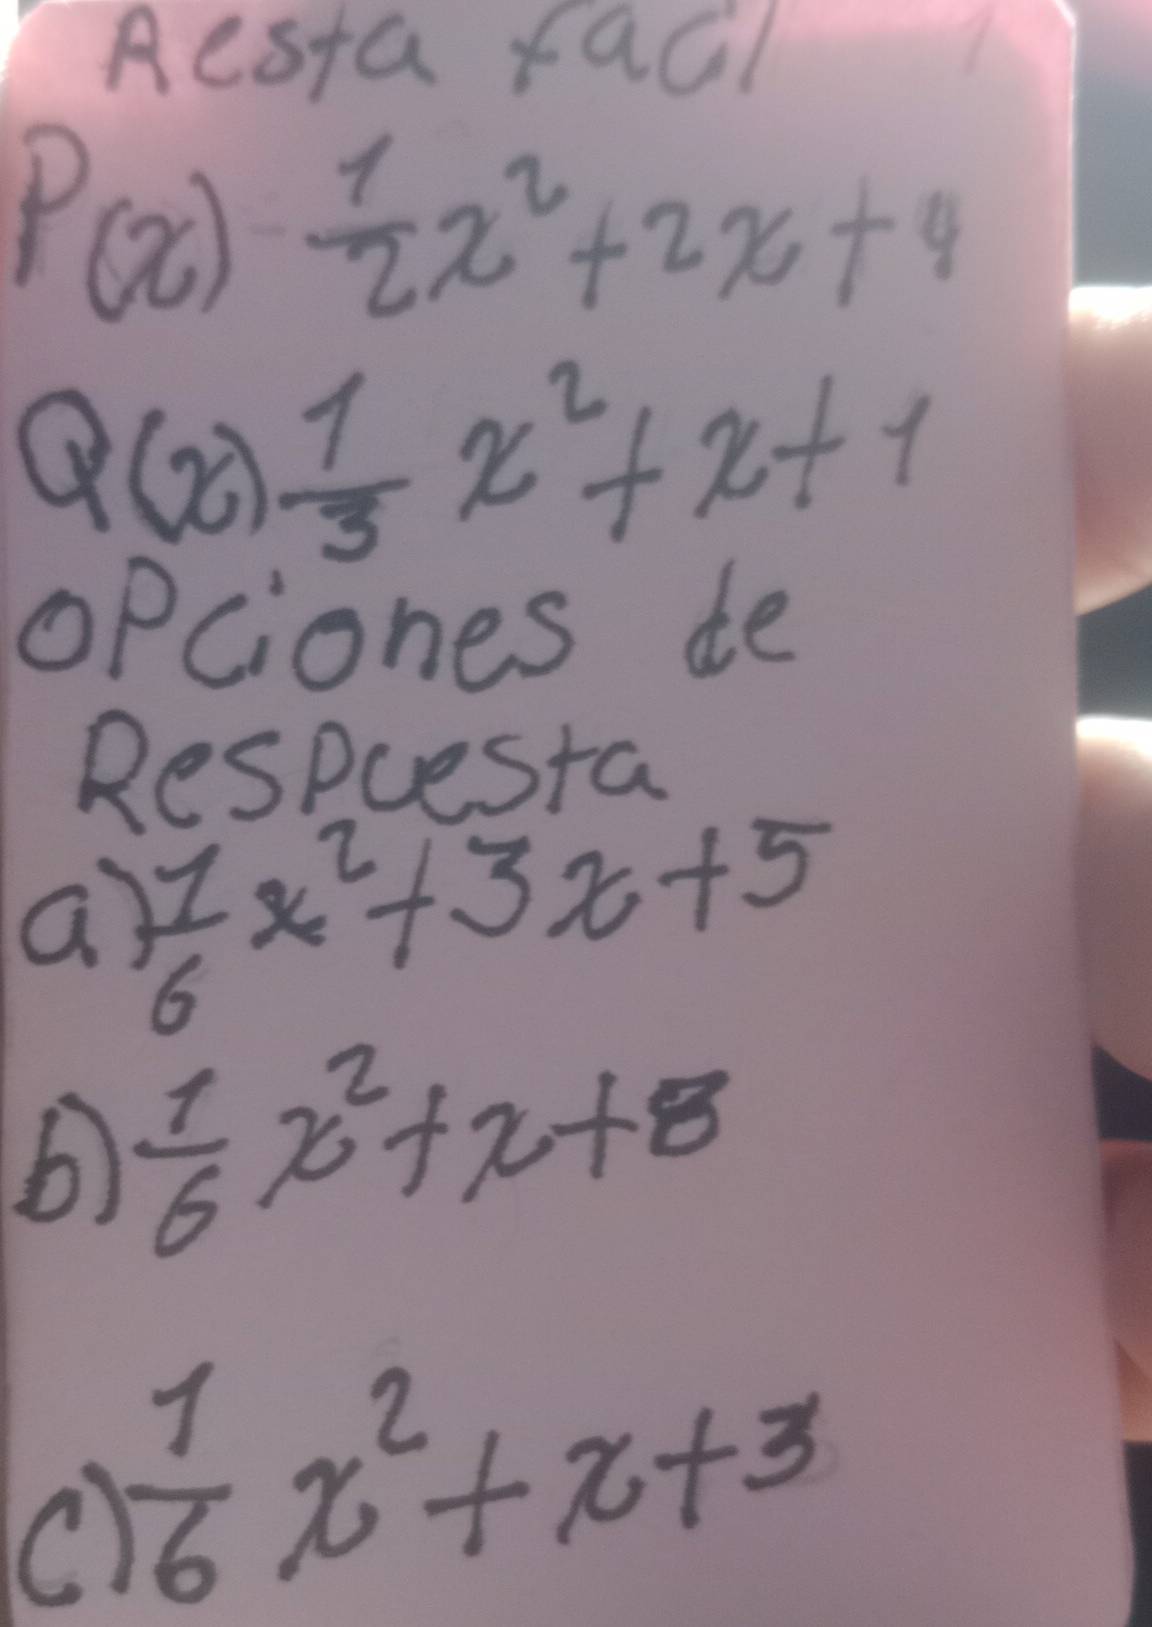 Resta facil
P(x) - 1/2 x² + 2x + 4
Q(x) 1/3 x² + x + 1
OPciones de
Respuesta
a) 1/6 x² + 3x + 5
b) 1/6 x² + x +
c) 1/6 x² + x + 3